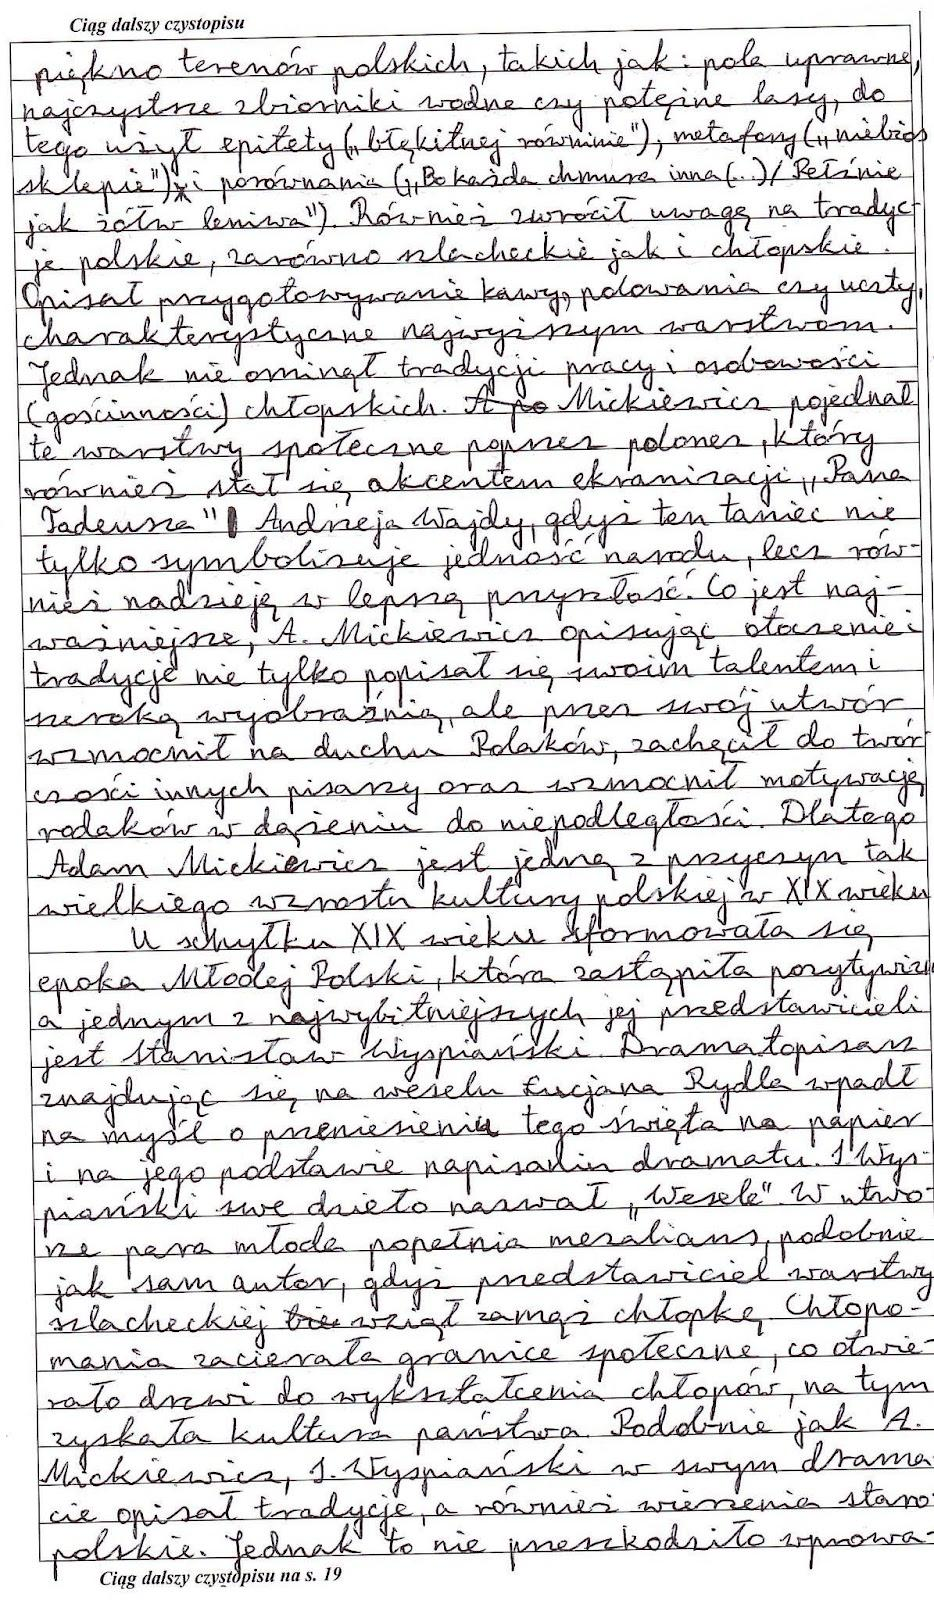 Ciąg dalszy czystopisu
piękno terenów polskich, takich jak: pola uprawne,
najczystsze zbiorniki wodne czy potężne lasy, do
tego użył epitety („błękitnej równinie"), metafory („niebios
sklepie") i porównania („Bo każda chmura inna (...)/ Pełźnie
jak żółw leniwa"). Również zwrócił uwagę na tradyc-
je polskie, zarówno szlacheckie jak i chłopskie.
Opisał przygotowywanie kawy, polowania czy uczty,
charakterystyczne najwyższym warstwom.
Jednak nie ominął tradycji pracy i osobowości
(gościnności) chłopskich. A po Mickiewicz pojednał
te warstwy społeczne poprzez polonez, który
również stał się akcentem ekranizacji „Pana
Tadeusza" Andrzeja Wajdy, gdyż ten taniec nie
tylko symbolizuje jedność narodu, lecz rów-
nież nadzieję w lepszą przyszłość. Co jest naj-
ważniejsze, A. Mickiewicz opisując otoczenie i
tradycje nie tylko popisał się swoim talentem i
szeroką wyobraźnią, ale przez swój utwór
wzmocnił na duchu Polaków, zachęcił do twór
czości innych pisarzy oraz wzmocnił motywację
rodaków w dążeniu do niepodległości. Dlatego
Adam Mickiewicz jest jedną z przyczyn tak
wielkiego wzrostu kultury polskiej w XIX wieku
U schyłku XIX wieku sformowała się
epoka Młodej Polski, która zastąpiła pozytywizm
a jednym z najwybitniejszych jej przedstawicieli
jest Stanisław Wyspiański. Dramatopisarz
znajdując się na weselu Łucjana Rydla wpadł
na myśl o przeniesieniu tego święta na papier
i na jego podstawie napisaniu dramatu. S. Wys-
piański swe dzieło nazwał „Wesele". W utwo-
rze para młoda popełnia mezalians, podobnie
jak sam autor, gdyż przedstawiciel warstwy
szlacheckiej wziął zamąż chłopkę. Chłopo-
mania zacierała granice społeczne, co otwie-
rało drzwi do wykształcenia chłopów, na tym
zyskała kultura państwa. Podobnie jak A.
Mickiewicz, S. Wyspiański w swym drama
cie opisał tradycje, a również wierzenia staro
polskie. Jednak to nie przeszkodziło wprowa-
Ciąg dalszy czystopisu na s. 19